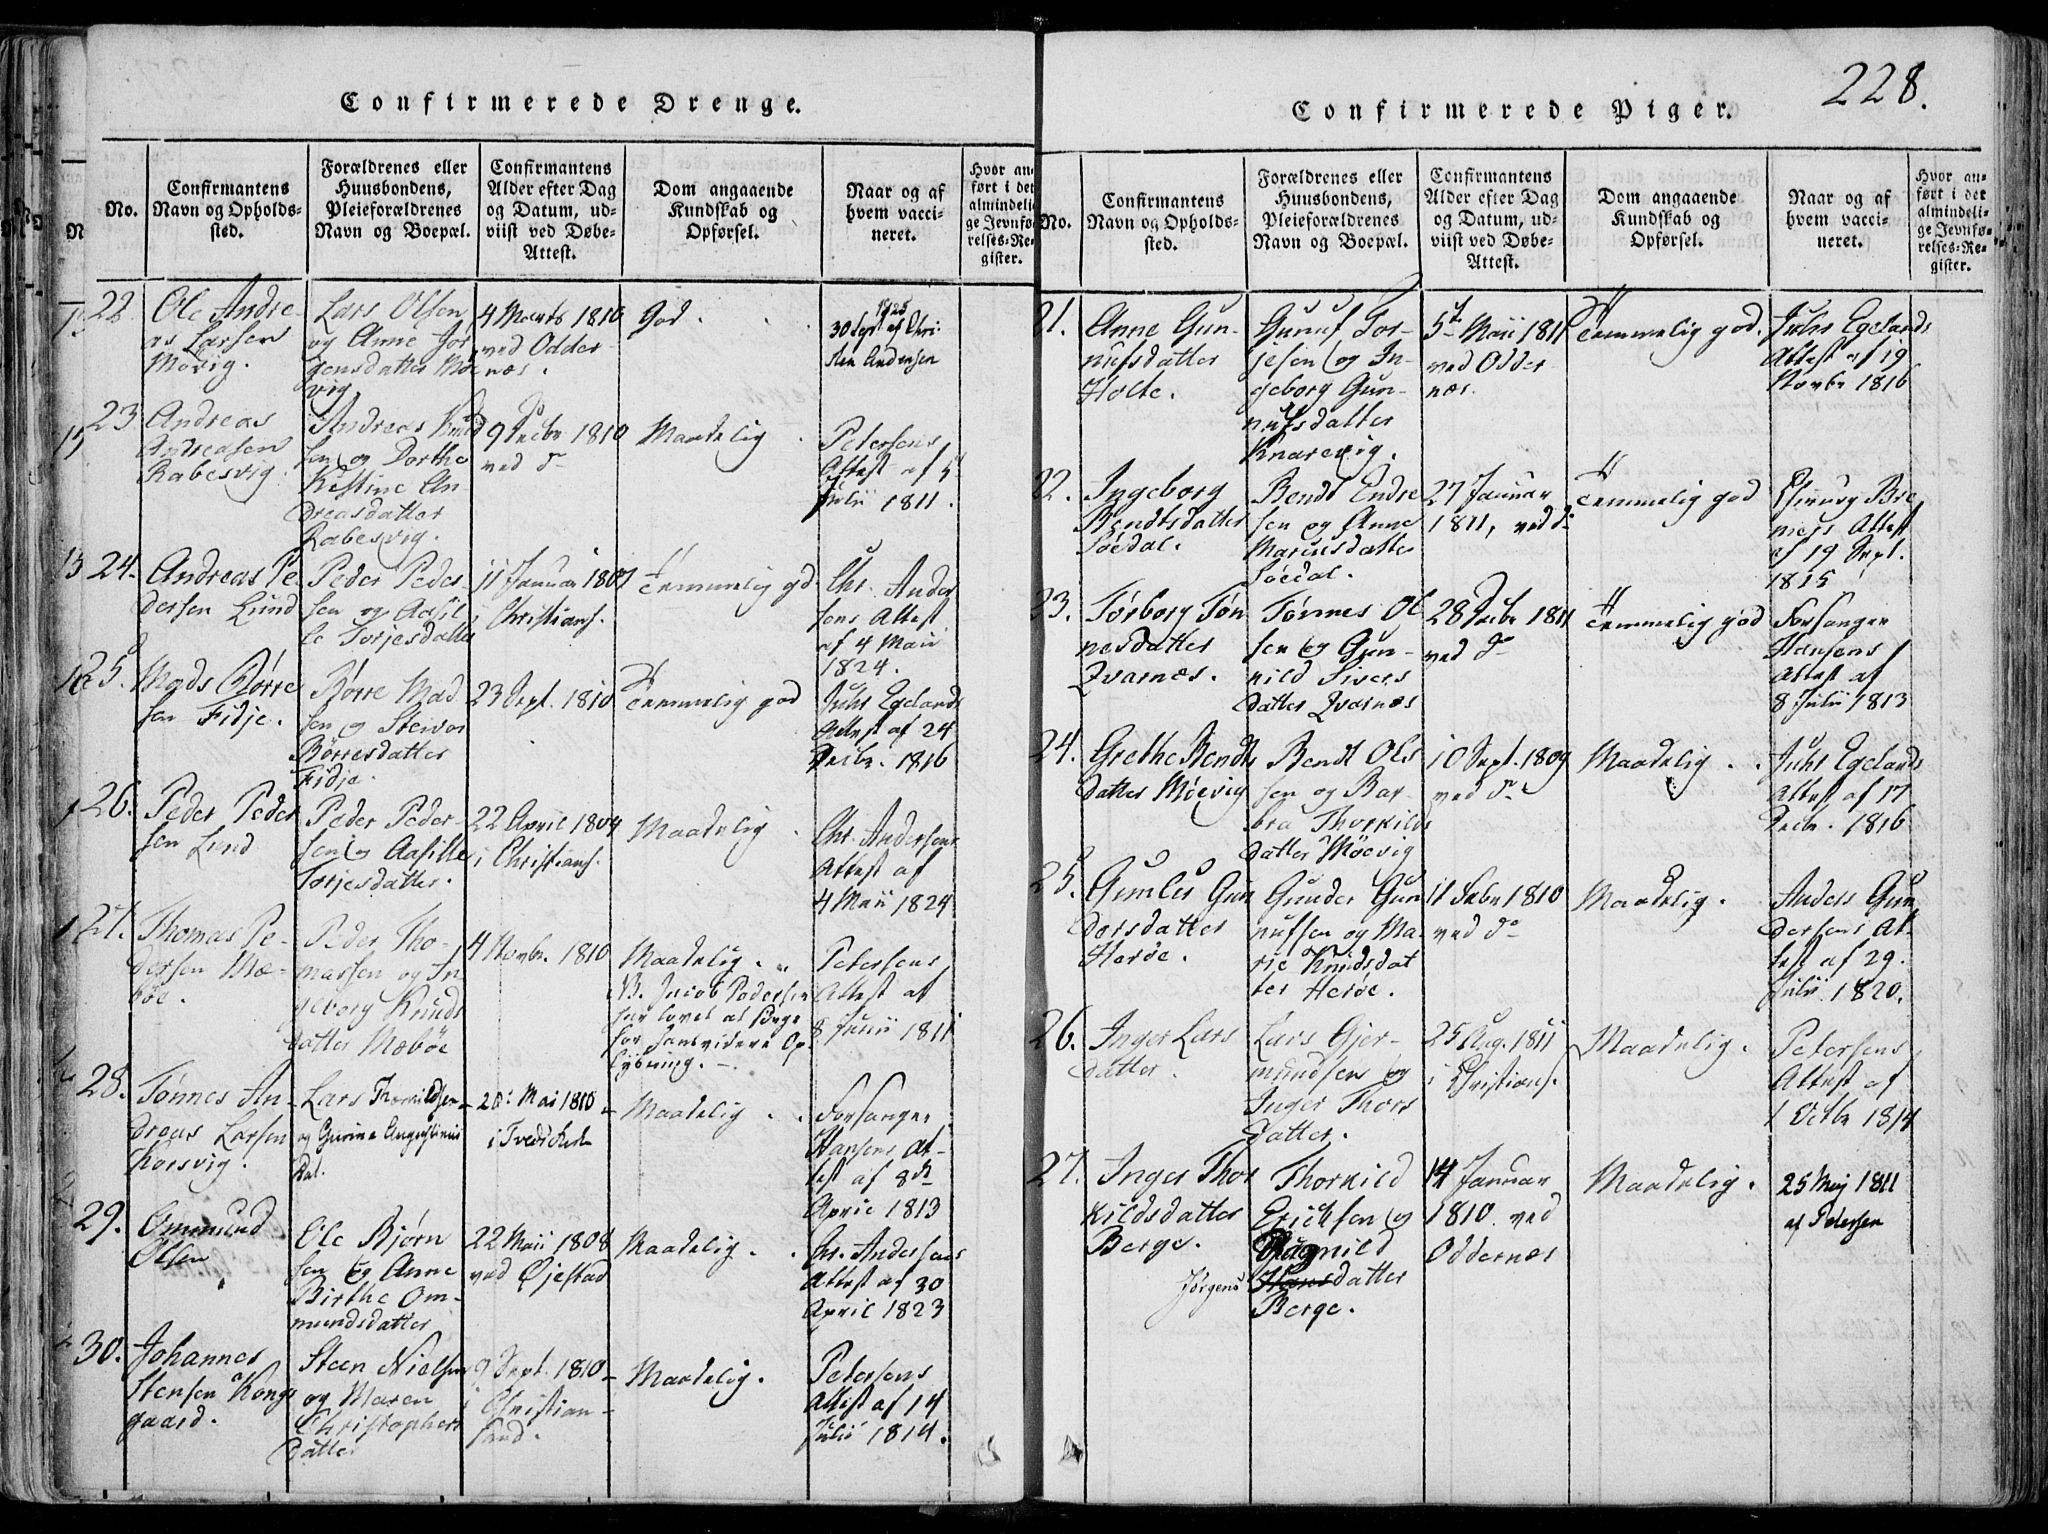 228.
Confirmerede Drenge.
No.
Confirmantens
Navn og Opholds-
sted.
Forældrenes eller
Huusbondens,
Pleieforældrenes
Navn og Boepæl.
Confirmantens
Alder efter Dag
og Datum, ud-
viist ved Døbe-
Attest.
Dom angaaende
Kundskab og
Opførsel.
Naar og af
hvem vacci-
neret.
Hvor an-
ført i det
almindeli-
ge Jevnfø-
relses-Re-
gister.
22
Ole Andre-
as Larsen
Møvig.
Lars Olsen
og Anne Jør
gensdatter Mø
vig
4 Marts 1810
ved Odder
næs.
God.
30 Sept af Chri
sten Andersen
23
Andreas
Andreasen
Rabesvig
Andreas Knud
sen og Dorthe
Kestine An
dreasdatter
Rabesvig.
9 Decbr 1810
ved do
Maadelig
Petersens
Attest af 5
Julii 1811.
24.
Andreas Pe-
dersen Lund
Peder Peder
sen og Aasil
le Torjesdatter
11 Januar 1807
i Christians.
Temmelig gd.
Chr. Ander
sens Attest
af 4 Maii
1824.
25.
Mads Børre
sen Fidje.
Børre Mad
sen og Steivor
Børresdatter
Fidje.
23 Sept. 1810
Temmelig god
Juhr Egelands
Attest af 24
Decbr. 1816
26.
Peder Peder
sen Lund
Peder Peder-
sen og Aasille
Torjesdatter.
22 April 1804
i Christians.
Maadelig
Chr. Andersens
Attest af
4 Maii 1824
27.
Thomas Pe-
dersen Mæ-
bøe.
Peder Tho-
massen og In
geborg Knuds
datter Mæbøe
4 Novbr. 1810
Maadelig.
NB. Jacob Pedersen
har lovet at sørge
for hans videre Op-
lysning.
Petersens
Attest af
8 Junii 1811
28.
Tønnes An-
dreas Larsen
Korsvig.
Lars Thorkildsen
og Gurine Augustinus
Dat.
20 Mai 1810
i Tvedt Kirke
Maadelig
Forsanger
Hansens At-
test af 8de
April 1813
29.
Ommund
Olsen
Ole Bjørn
sen og Anne
Birthe Om-
mundsdatter
22 Maii 1808
ved Øjestad
Maadelig.
Chr. Andersens
Attest af 30
April 1823
30.
Johannes
Stensen Kongs
gaard.
Steen Nielsen
og Maren
Christophers
datter
9 Sept. 1810
i Christian-
sand.
Maadelig.
Petersens
Attest af 14
Julii 1814.
Confirmerede Piger.
No.
Confirmantens
Navn og Opholds-
sted.
Forældrenes eller
Huusbondens,
Pleieforældrenes
Navn og Boepæl.
Confirmantens
Alder efter Dag
og Datum, ud-
viist ved Døbe-
Attest.
Dom angaaende
Kundskab og
Opførsel.
Naar og af
hvem vacci-
neret.
Hvor an-
ført i det
almindeli-
ge Jevnfø-
relses-Re-
gister.
21.
Anne Gun-
nufsdatter
Holte.
Gunuf Tor-
jesen og In-
geborg Gun-
nufsdatter
Knarevig.
5te Maii 1811
ved Odder
næs.
Temmelig god.
Juhr Egelands
Attest af 19
Novbr 1816
22.
Ingeborg
Bendtsdatter
Søedal.
Bendt Endre
sen og Anne
Mariusdatter
Søedal.
27 Januar
1811, ved do
Temmelig god
Attest
af 19 Sept.
1815
23.
Torborg Tøn
nesdatter
Qvarnæs.
Tønnes Ol
sen og Gun-
nild Sivers
datter Qvarnæs
28 Decbr 1811
ved do
Temmelig god
Forsanger
Hansens
Attest af
8 Julii 1813
24.
Grethe Bendts
datter Møevig
Bendt Ols
sen og Bar-
bra Thorkilds
datter Møevig
10 Sept. 1809
ved do
Maadelig.
Juhr Egelands
Attest af 17
Decbr. 1816
25.
Gumler Gun
dersdatter
Herøe.
Gunder Gun
nufsen og Ma-
rie Knudsdat
ter Herøe.
11 Febr 1810
ved do
Maadelig.
Anders Gun
dersens At-
test af 29.
Julii 1820.
26.
Inger Lars
datter.
Lars Gjer-
mundsen og
Inger Thors
datter.
25 Aug. 1811
i Christians.
Maadelig.
Petersens
Attest af
1 Octbr 1814
27.
Inger Thor
kildsdatter
Berge.
Thorkild
Erichsen og
Ragnild
Jørgens Hansdatter
Berge.
14 Januar
1810 ved
Oddernæs
Maadelig.
25 Maj 1811
af Petersen